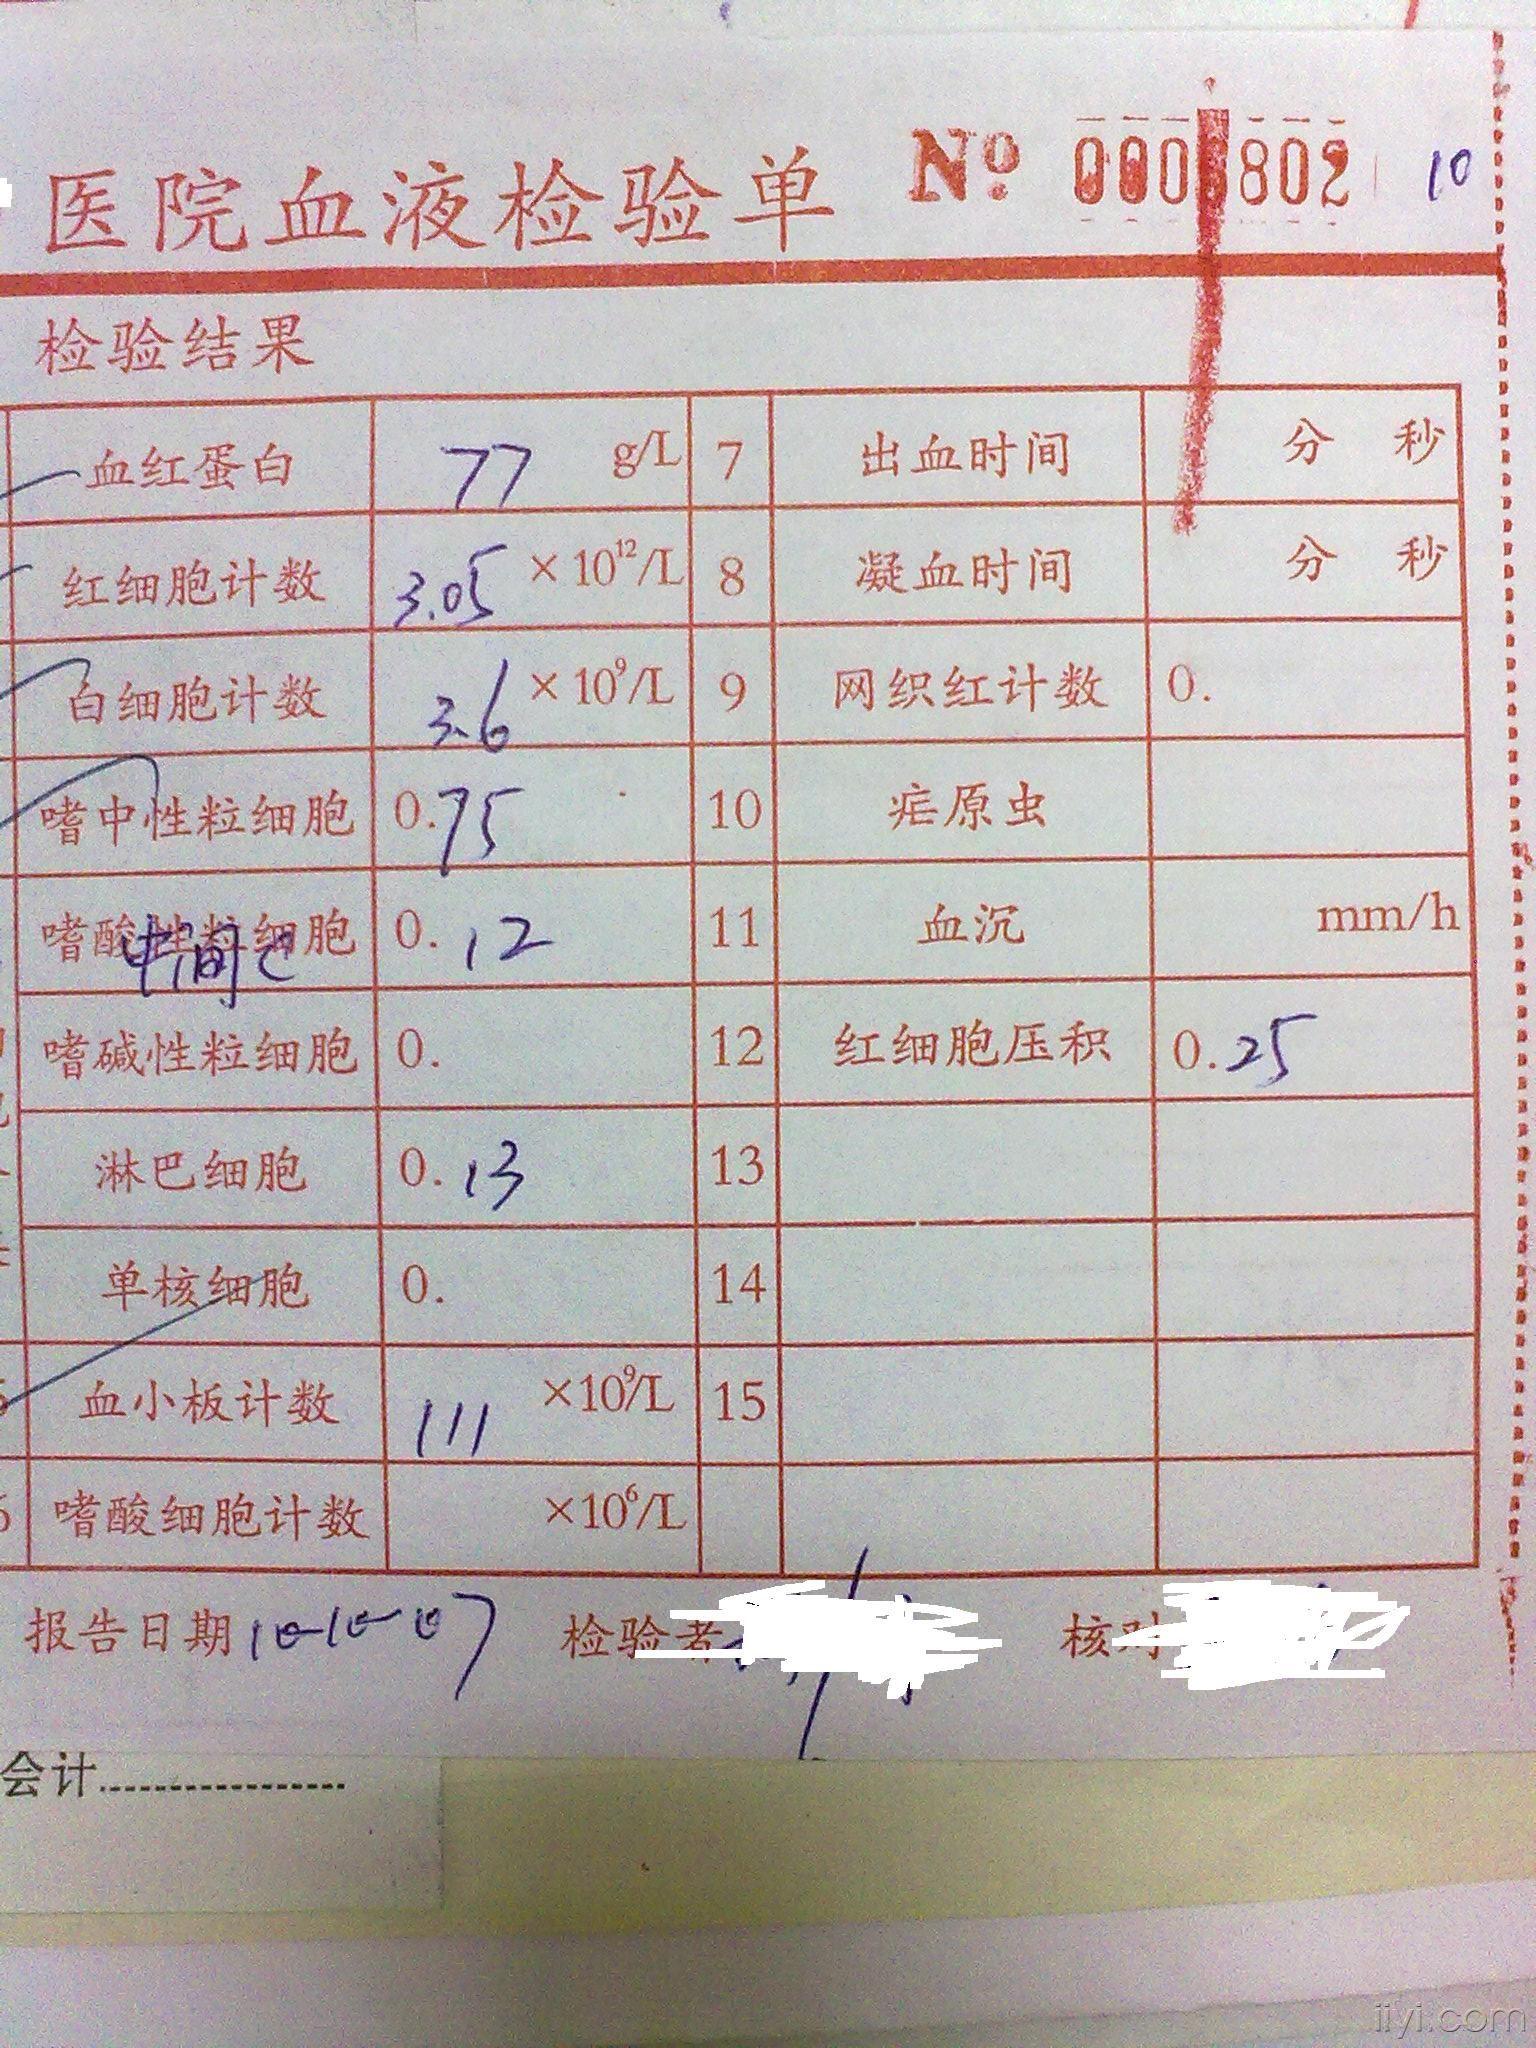 医院血液检验单 № 0000802 10
检验结果
血红蛋白 77 g/L 7 出血时间 分 秒
红细胞计数 3.05 ×10¹²/L 8 凝血时间 分 秒
白细胞计数 3.6 ×10⁹/L 9 网织红计数 0.
嗜中性粒细胞 0.75 10 疟原虫
嗜酸性粒细胞 中间 0.12 11 血沉 mm/h
嗜碱性粒细胞 0. 12 红细胞压积 0.25
淋巴细胞 0.13 13
单核细胞 0. 14
血小板计数 111 ×10⁹/L 15
6 嗜酸细胞计数 ×10⁶/L
报告日期 10-10-07 检验者 核对
会计
iiyi.com